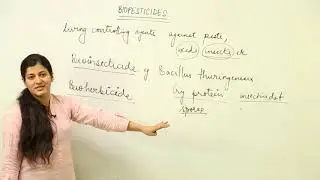 BIOPESTICIDES
Living controlling agents against pests,
weeds insects etc
Bioinsecticide eg Bacillus thuringenous
Bioherbicide Cry protein insecticidal
spores